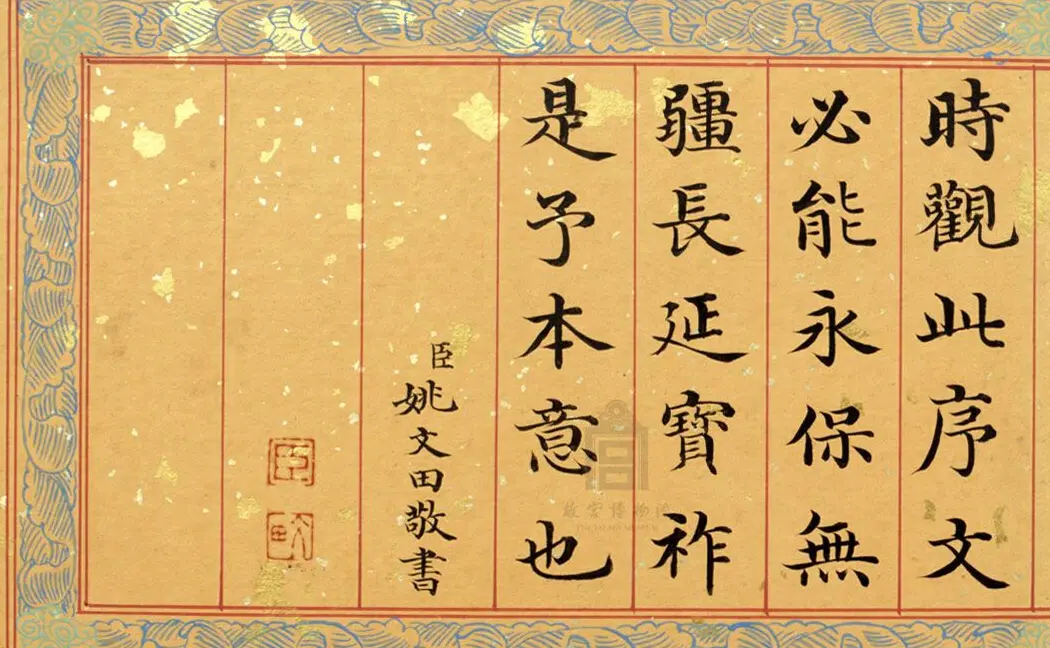 時觀此序文
必能永保無
疆長延寶祚
是予本意也
臣姚文田敬書
臣
故宮博物院